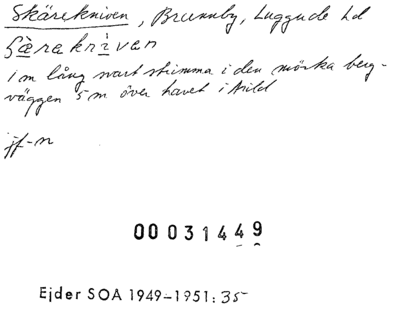 Skärekniven, Brunnby, Luggude hd
1 m lång svart strimma i den mörka berg-
väggen 5 m över havet i Arild
jf-n
00031449
Ejder SOA 1949-1951:35